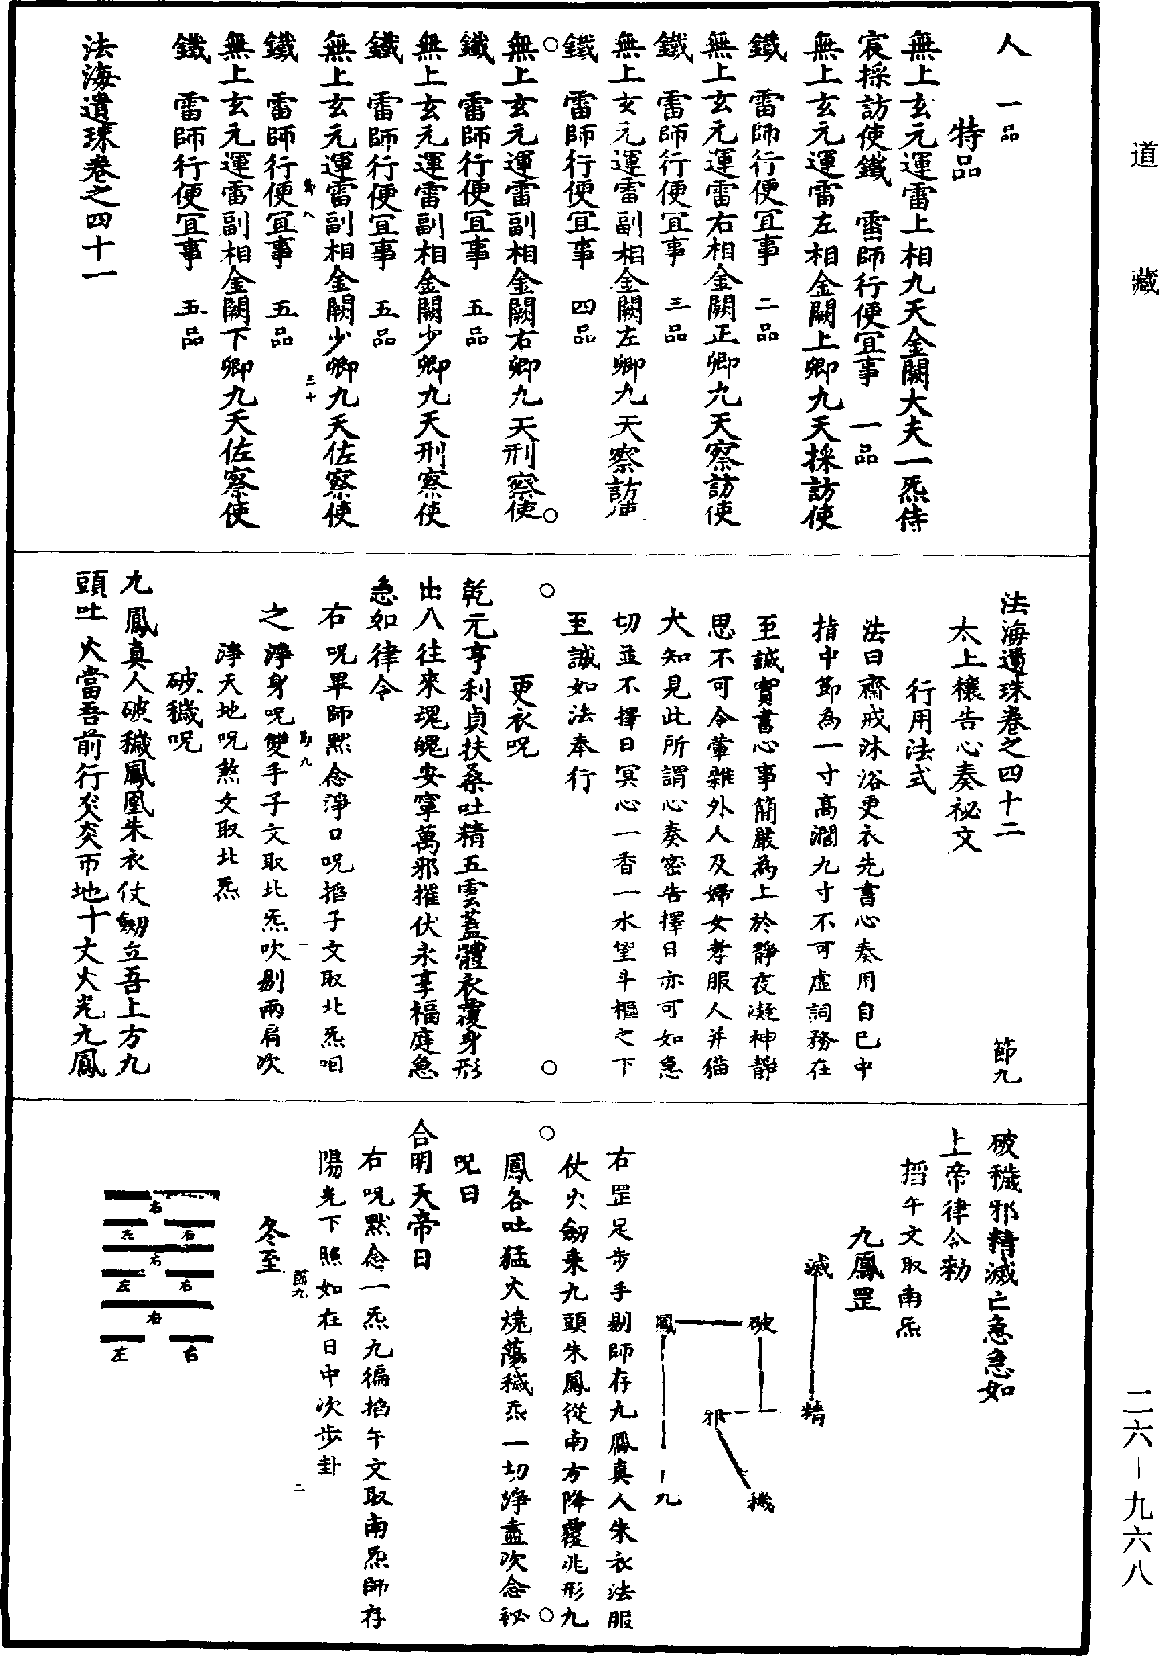 道藏
人　一品
特品
無上玄元運雷上相九天金闕大夫一炁侍
宸採訪使鐵　雷師行便宜事　一品
無上玄元運雷左相金闕上卿九天採訪使
鐵　雷師行便宜事　二品
無上玄元運雷右相金闕正卿九天察訪使
鐵　雷師行便宜事　三品
無上玄元運雷副相金闕左卿九天察訪使
鐵　雷師行便宜事　四品
無上玄元運雷副相金闕右卿九天刑察使
鐵　雷師行便宜事　五品
無上玄元運雷副相金闕少卿九天刑察使
鐵　雷師行便宜事　五品
無上玄元運雷副相金闕少卿九天佐察使
節八　三十
鐵　雷師行便宜事　五品
無上玄元運雷副相金闕下卿九天佐察使
鐵　雷師行便宜事　五品
法海遺珠卷之四十一
法海遺珠卷之四十二　節九
太上禳告心奏祕文
行用法式
法曰齋戒沐浴更衣先書心奏用自己中
指中節為一寸高濶九寸不可虛詞務在
至誠實書心事簡嚴為上於靜夜凝神靜
思不可令葷雜外人及婦女孝服人并猫
犬知見此所謂心奏密告擇日亦可如急
切並不擇日冥心一香一水望斗樞之下
至誠如法奉行
更衣呪
乾元亨利貞扶桑吐精五雲蓋體衣覆身形
出入往來魂魄安寧萬邪摧伏永享福庭急
急如律令
右呪畢師默念淨口呪掐子文取北炁咽
節九　一
之淨身呪雙手子文取北炁吹剔兩肩次
淨天地呪煞文取北炁
破穢呪
九鳳真人破穢鳳凰朱衣仗劒立吾上方九
頭吐火當吾前行炎炎帀地十丈火光九鳳
破穢邪精滅亡急急如
上帝律令勑
掐午文取南炁
九鳳罡
滅
精
破
邪
穢
鳳
九
右罡足步手剔師存九鳳真人朱衣法服
仗火劒乘九頭朱鳳從南方降覆兆形九
鳳各吐猛火燒蕩穢炁一切淨盡次念祕
呪曰
合明天帝日
右呪默念一炁九徧掐午文取南炁師存
陽光下照如在日中次步卦
節九　二
冬至
右
左　右
右
左　右
右
左　右
二六－九六八